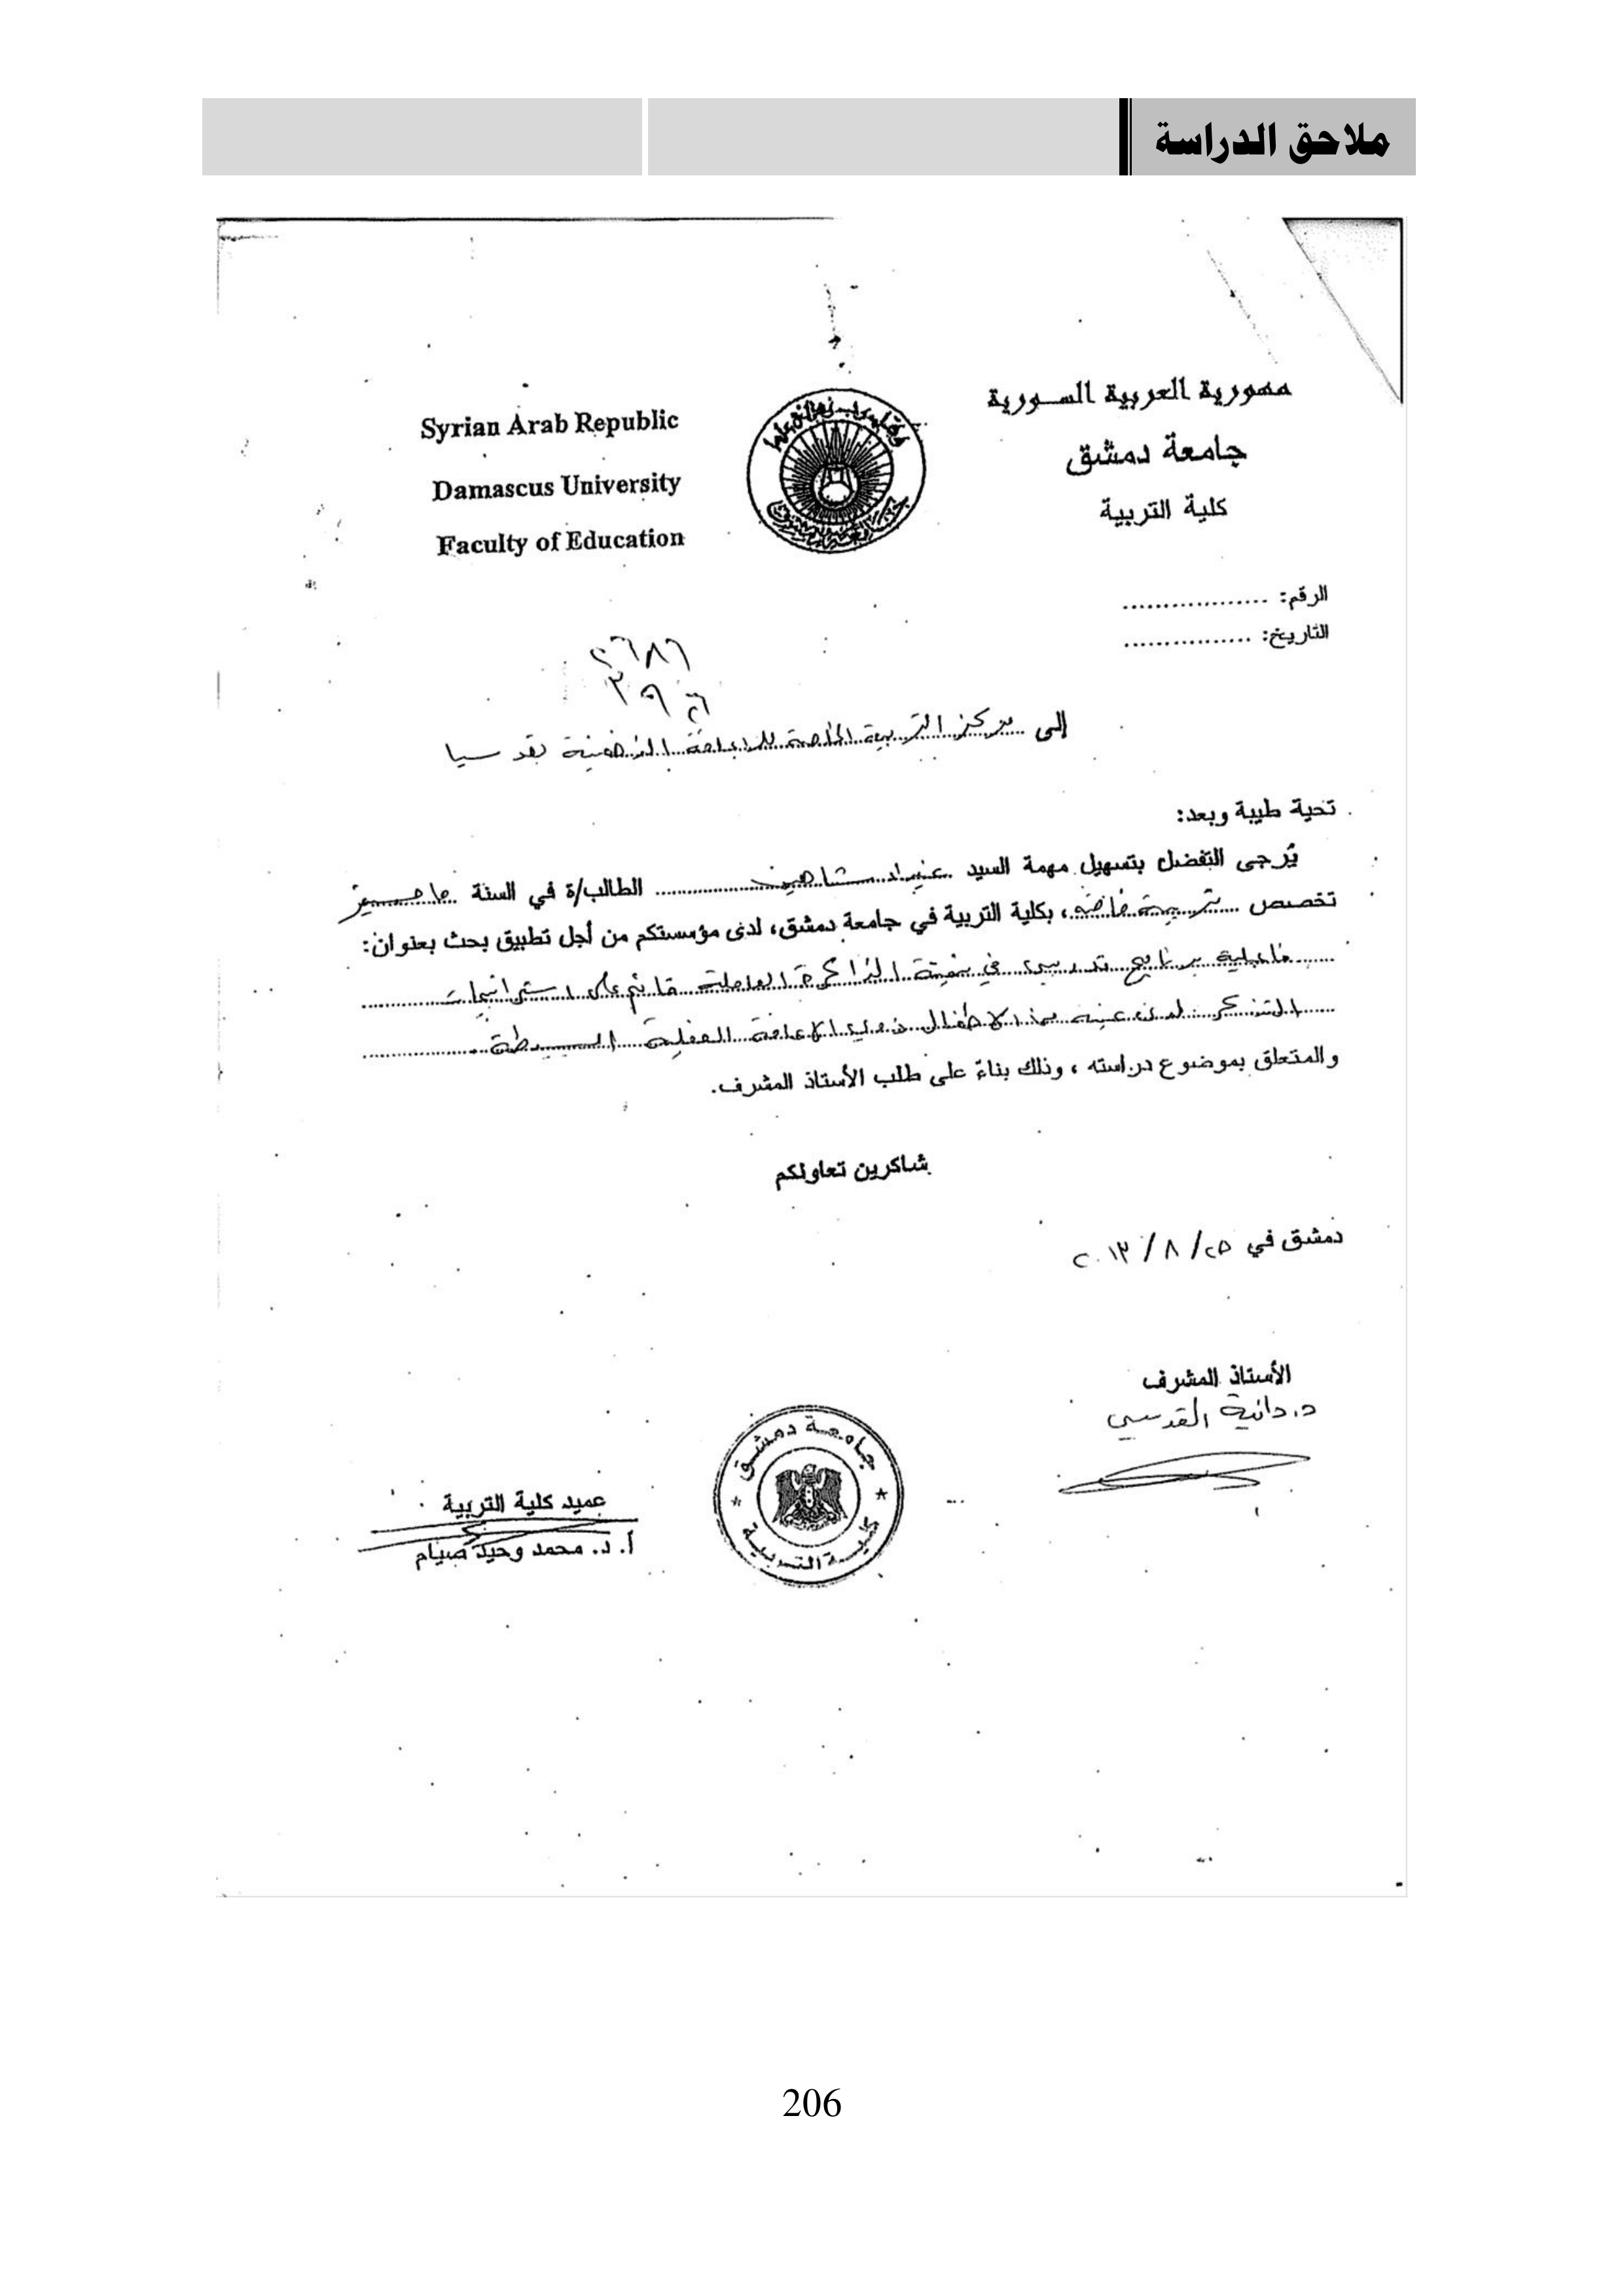 ملاحق الدراسة
مهورية العربية السورية
جامعة دمشق
كلية التربية
Syrian Arab Republic
Damascus University
Faculty of Education
الرقم: ..................
التاريخ: ................
إلى مركز التربية الخاصة للإعاقة الذهنية بقدسيا
تحية طيبة وبعد:
يُرجى التفضل بتسهيل مهمة السيد شاهين الطالب/ة في السنة ماجستير
تخصص تربية خاصة، بكلية التربية في جامعة دمشق، لدى مؤسستكم من أجل تطبيق بحث بعنوان:
فاعلية برنامج تدريبي في تنمية الذاكرة العاملة قائم على استراتيجيات
التذكر لدى عينة من الأطفال ذوي الإعاقة العقلية البسيطة
والمتعلق بموضوع دراسته ، وذلك بناءً على طلب الأستاذ المشرف.
شاكرين تعاونكم
دمشق في ٢٥/ ٨ / ٢٠١٣
الأستاذ المشرف
د. دانية القدسي
جامعة دمشق
كلية التربية
عميد كلية التربية
أ. د. محمد وحيد صيام
206